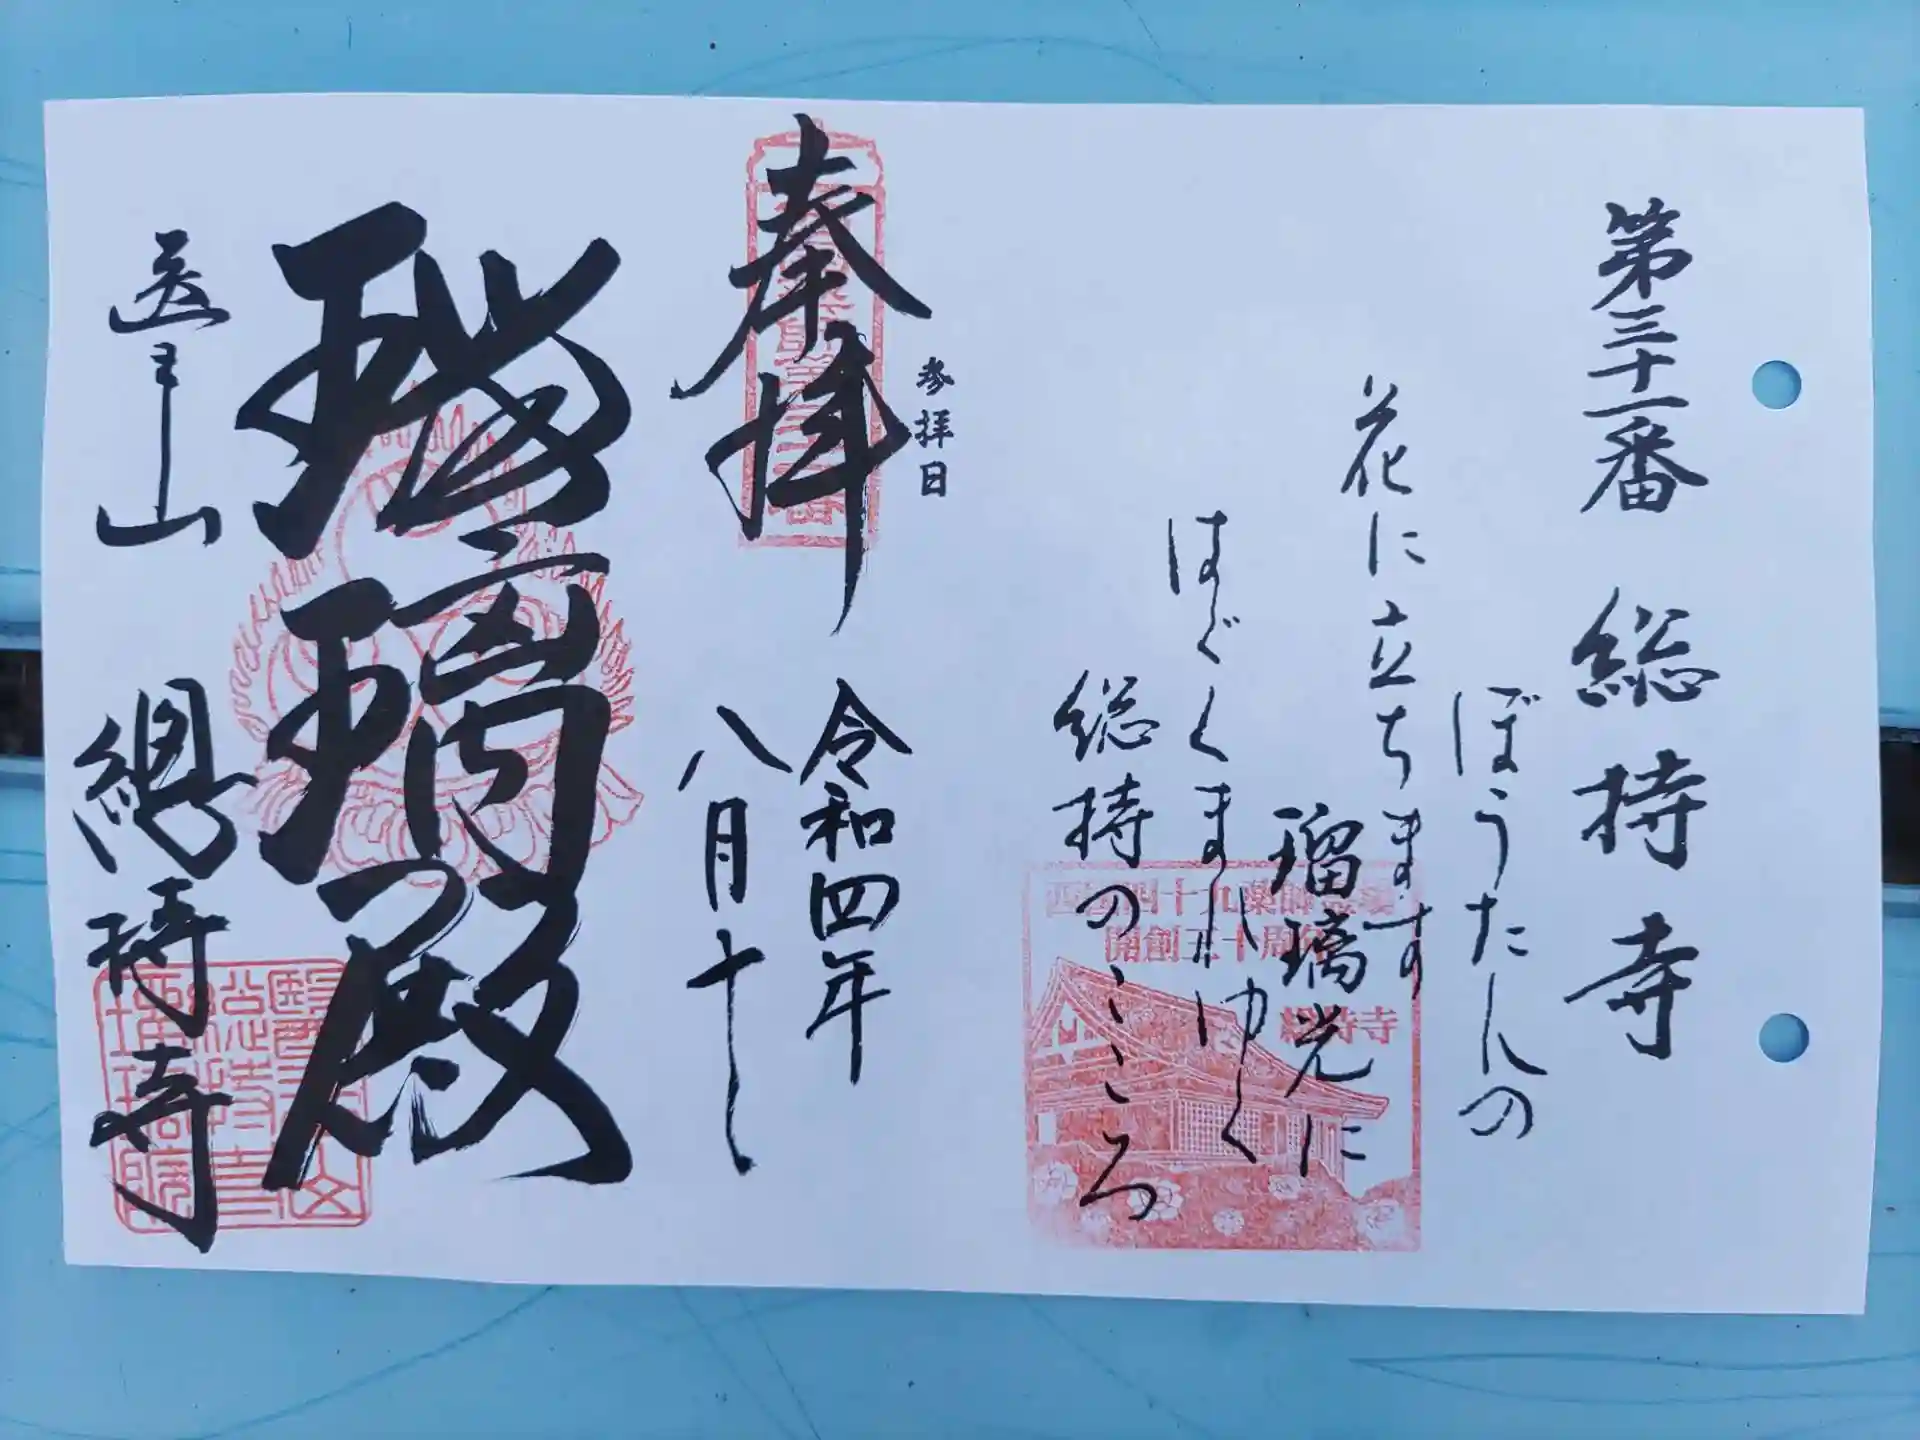 第三十一番 総持寺
ぼうたんの
花に立ちます
瑠璃光に
はぐくまれゆく
総持のこころ
西国四十九薬師霊場
開創三十周年
総持寺
参拝日
奉拝
令和四年
八月十一
瑠璃殿
医王山
總持寺